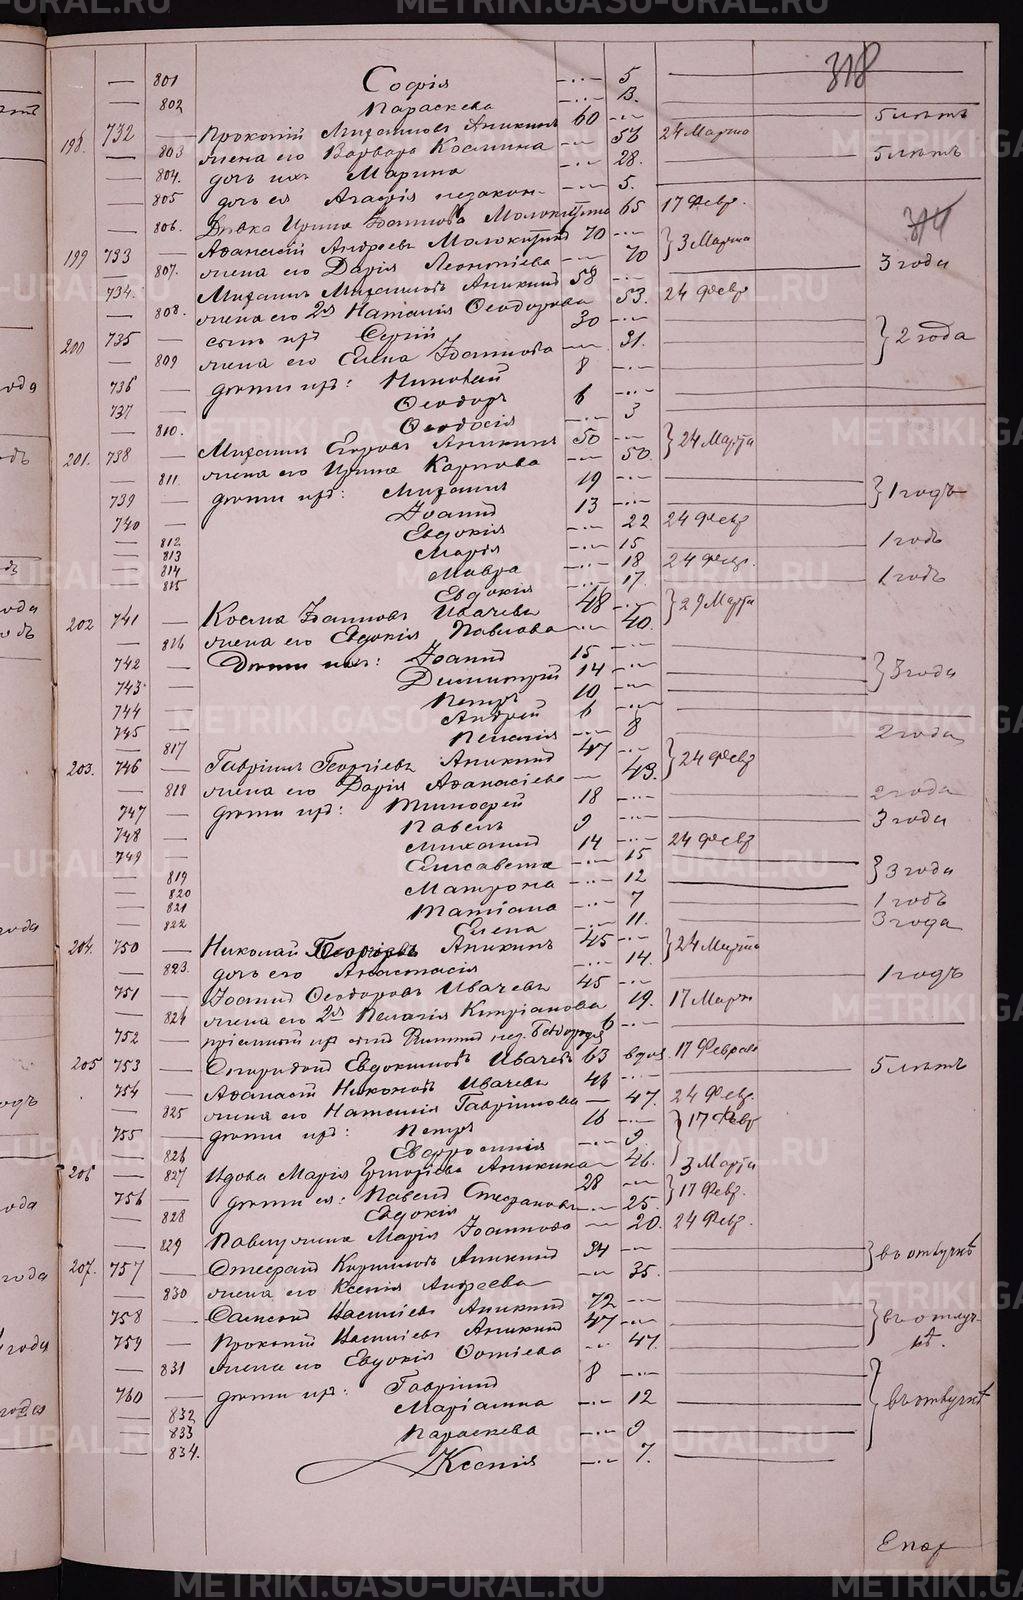 METRIKI.GASO-URAL.RU
318
801 Софія 5
802 Параскева 13.
198. 732 Прокопій Михаиловъ Аникинъ 60 24 Марта 5 лѣтъ
803 жена его Варвара Космина 53
804. дочь ихъ Марина 28. 5 лѣтъ
805 дочь ея Агафія незакон. 5.
806. Дѣвка Ирина Іоаннова 65 17 Февр.
199 733 Аѳанасій Андреевъ 70 } 3 Марта
807. жена его Дарія Леонтіева 70 3 года
734. Михаилъ Михаиловъ Аникинъ 58 24 Февр
808. жена его 2я Наталія Ѳеодорова 53.
200 735 сынъ Сергій 30 } 2 года
809 жена его Елена Іоаннова 31.
736 дѣти 8
737 Ѳеодоръ 6
810. Ѳеодосія 3
201. 738 Михаилъ Егоровъ Аникинъ 50 } 24 Марта
811. жена его Ирина Карпова 50.
739 дѣти Михаилъ 19 } 1 годъ
740 Іоаннъ 13
812 Евдокія 22 24 Февр
813 Марія 15 1 годъ
814 Мавра 18 24 Февр.
815 Евдокія 17. 1 годъ
202 741 Косма Іоанновъ Ивачевъ 48 } 29 Марта
816 жена его Евдокія Павлова 40.
742 Дѣти ихъ: Іоаннъ 15 } 3 года
743 Димитрій 14
744 Петръ 10
745 Андрей 6
817 Пелагія 8 2 года
203. 746 Гавріилъ Георгіевъ Аникинъ 47 } 24 Февр
818 жена его Дарія Аѳанасіева 43.
747 дѣти Тимофей 18 2 года
748 Павелъ 9 3 года
749 Михаилъ 14 24 Февр
819 Елисавета 15 } 3 года
820 Матрона 12
821 Татіана 7 1 годъ
822 Елена 11. 3 года
204. 750 Николай Георгіевъ Аникинъ 45 } 24 Марта
823. дочь его Анастасія 14.
751 Іоаннъ Ѳеодоровъ Ивачевъ 45 1 годъ
824 жена его 2я Пелагія Кипріанова 19. 17 Марта
752 6
205 753 Спиридонъ Евдокимовъ Ивачевъ 63 вдов. 17 Февраля
754 Аѳанасій Никоновъ Ивачевъ 46 5 лѣтъ
825 жена его Наталія Гавріилова 47. 24 Февр.
755 дѣти Петръ 16 } 17 Февр
826 Евфросинія 9.
206 827 Вдова Марія Григоріева Аникина 46. 3 Марта
756 дѣти ея: Павелъ Стефановъ 28 } 17 Февр.
828 Евдокія 25.
829 Павлу жена Марія Іоаннова 20. 24 Февр.
207. 757 Стефанъ Кириловъ Аникинъ 34 } въ отлучкѣ
830 жена его Ксенія Андреева 35.
758 Васильевъ Аникинъ 72 } въ отлуч-
759 Прокопій Васильевъ Аникинъ 47 кѣ.
831 жена его Евдокія Фотіева 47.
760 дѣти Гавріилъ 8 } въ отлучкѣ
832 Маріанна 12
833 Параскева 9
834. Ксенія 7.